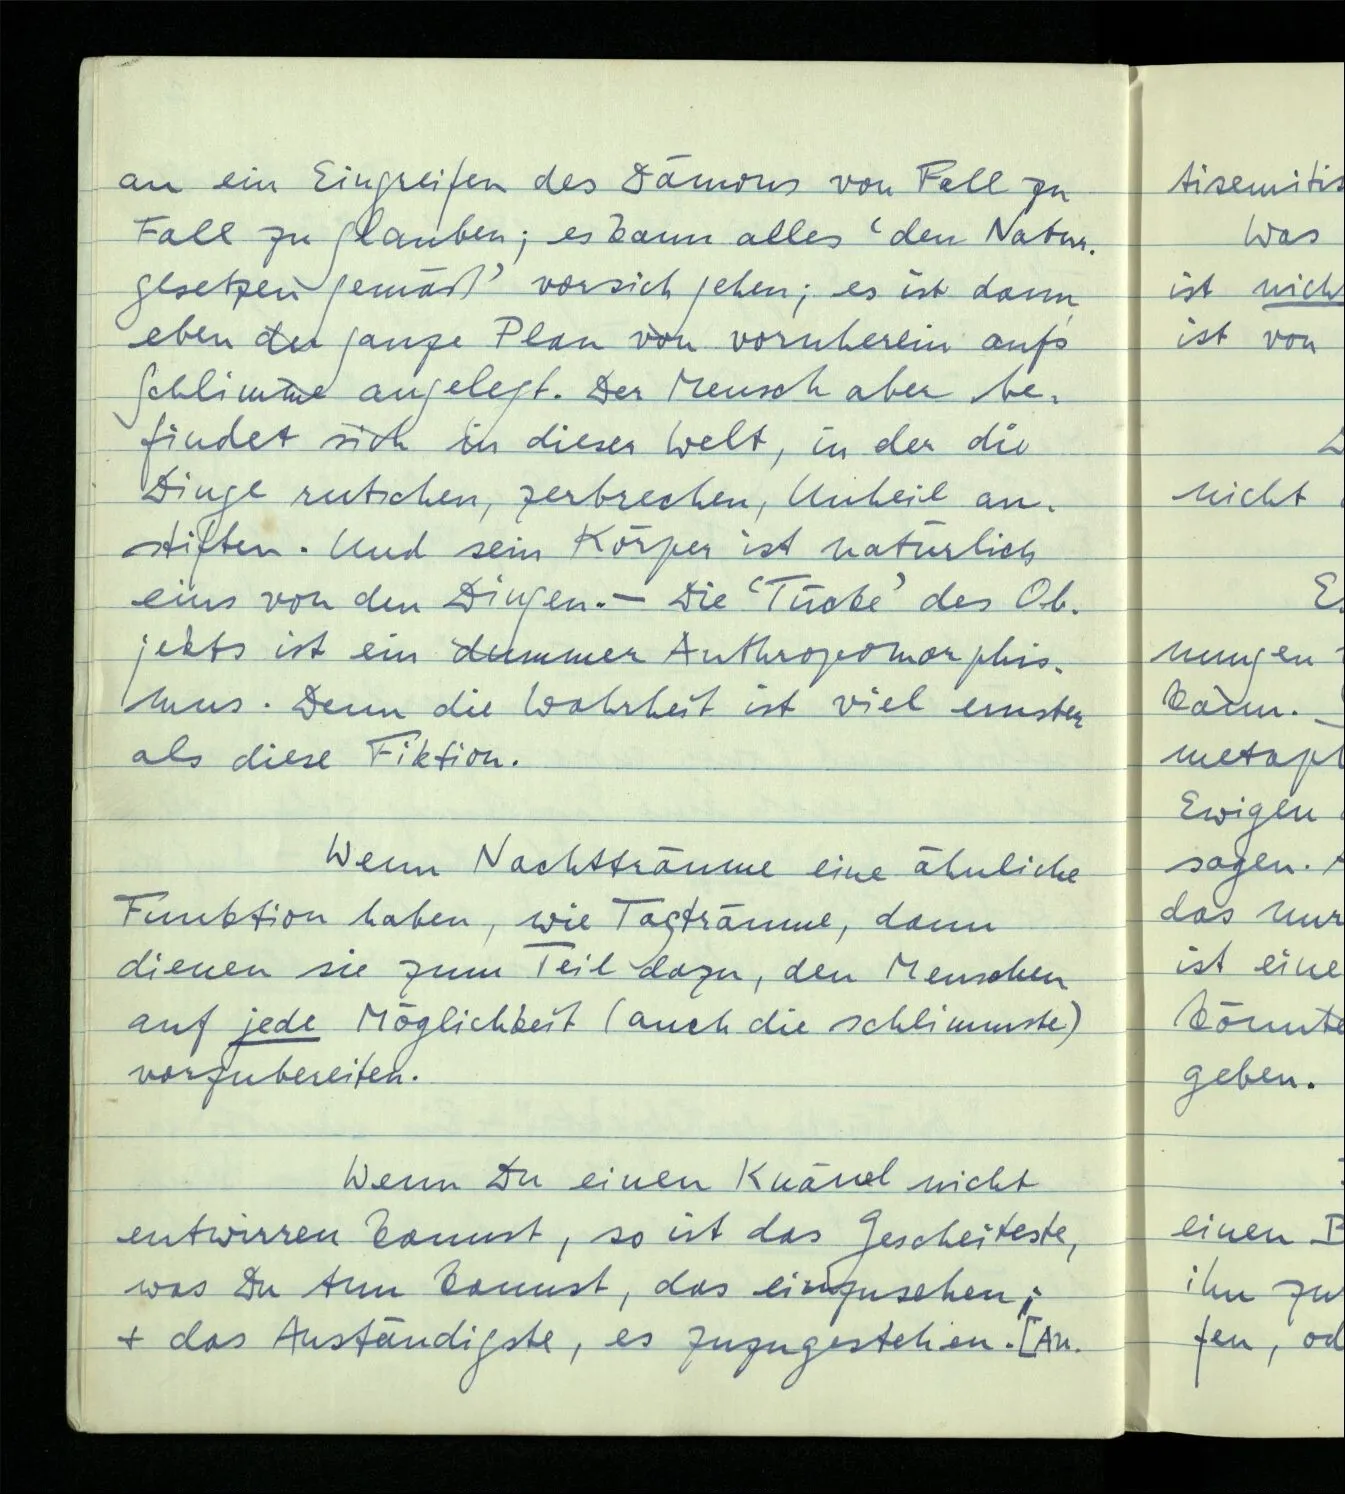 an ein Eingreifen des Dämons von Fall zu
Fall zu glauben; es kann alles ‘den Natur-
gesetzen gemäß’ vorsich gehen; es ist dann
eben der ganze Plan von vornherein aufs
Schlimme angelegt. Der Mensch aber be-
findet sich in dieser Welt, in der die
Dinge rutschen, zerbrechen, Unheil an-
stiften. Und sein Körper ist natürlich
eins von den Dingen. – Die ‘Tücke’ des Ob-
jekts ist ein dummer Anthropomorphis-
mus. Denn die Wahrheit ist viel ernster
als diese Fiktion.
Wenn Nachtträume eine ähnliche
Funktion haben, wie Tagträume, dann
dienen sie zum Teil dazu, den Menschen
auf jede Möglichkeit (auch die schlimmste)
vorzubereiten.
Wenn Du einen Knäuel nicht
entwirren kannst, so ist das Gescheiteste,
was Du tun kannst, das einzusehen;
+ das Anständigste, es zuzugestehen. [An-
tisemitis
Was
ist nich
ist von
D
nicht
Es
nungen
kann.
metaph
Ewigen
sagen.
das nur
ist eine
könnte
geben.
einen B
ihn zu
fen, od